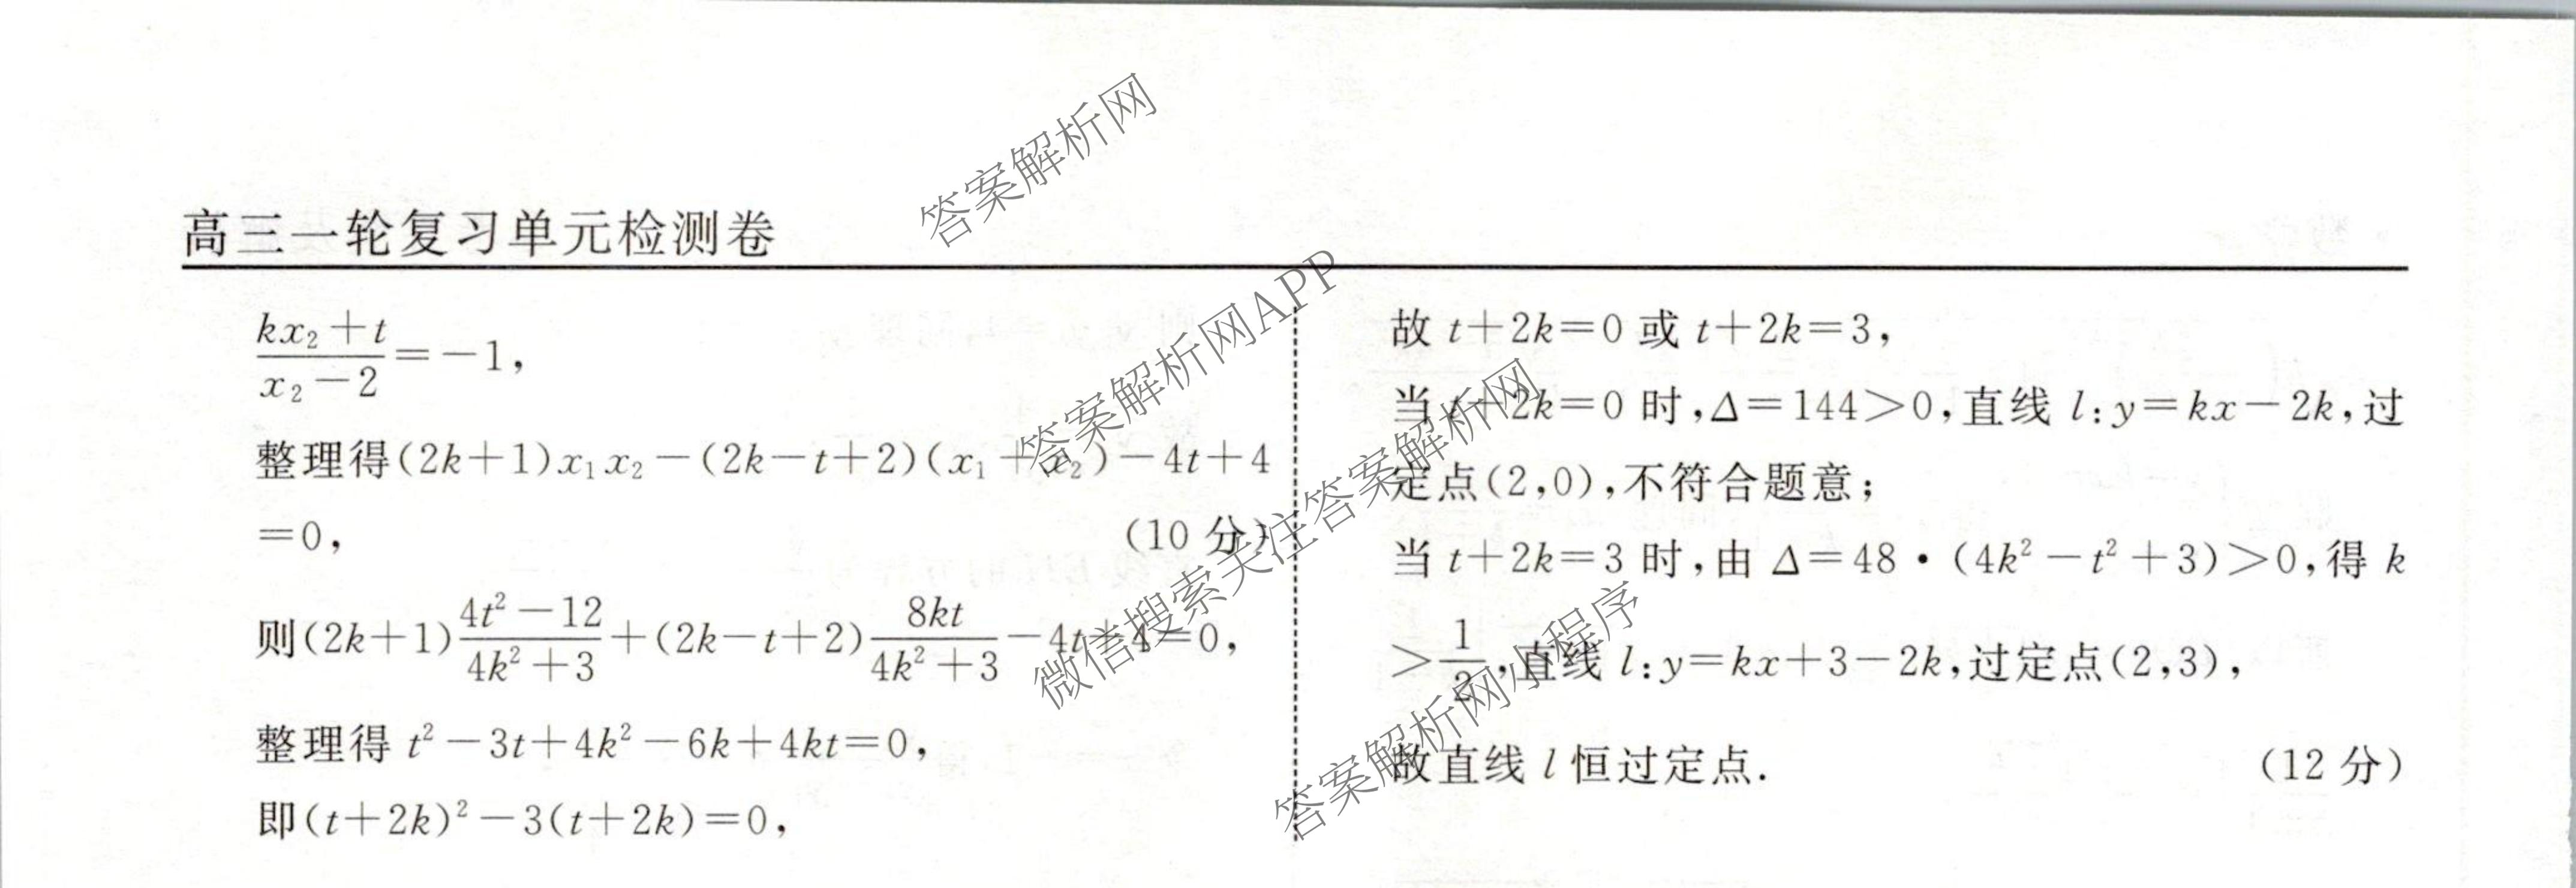 高三一轮复习单元检测卷
\frac{kx₂+t}{x₂-2}=-1,
整理得(2k+1)x₁x₂-(2k-t+2)(x₁+x₂)-4t+4
=0, (10分)
则(2k+1)\frac{4t²-12}{4k²+3}+(2k-t+2)\frac{8kt}{4k²+3}-4t+4=0,
整理得 t²-3t+4k²-6k+4kt=0,
即(t+2k)²-3(t+2k)=0,
故 t+2k=0 或 t+2k=3,
当 t+2k=0 时,Δ=144>0,直线 l:y=kx-2k,过
定点(2,0),不符合题意;
当 t+2k=3 时,由 Δ=48·(4k²-t²+3)>0,得 k
>\frac{1}{2},直线 l:y=kx+3-2k,过定点(2,3),
故直线 l 恒过定点. (12分)
答案解析网
答案解析网APP
微信搜索关注答案解析网
答案解析网小程序